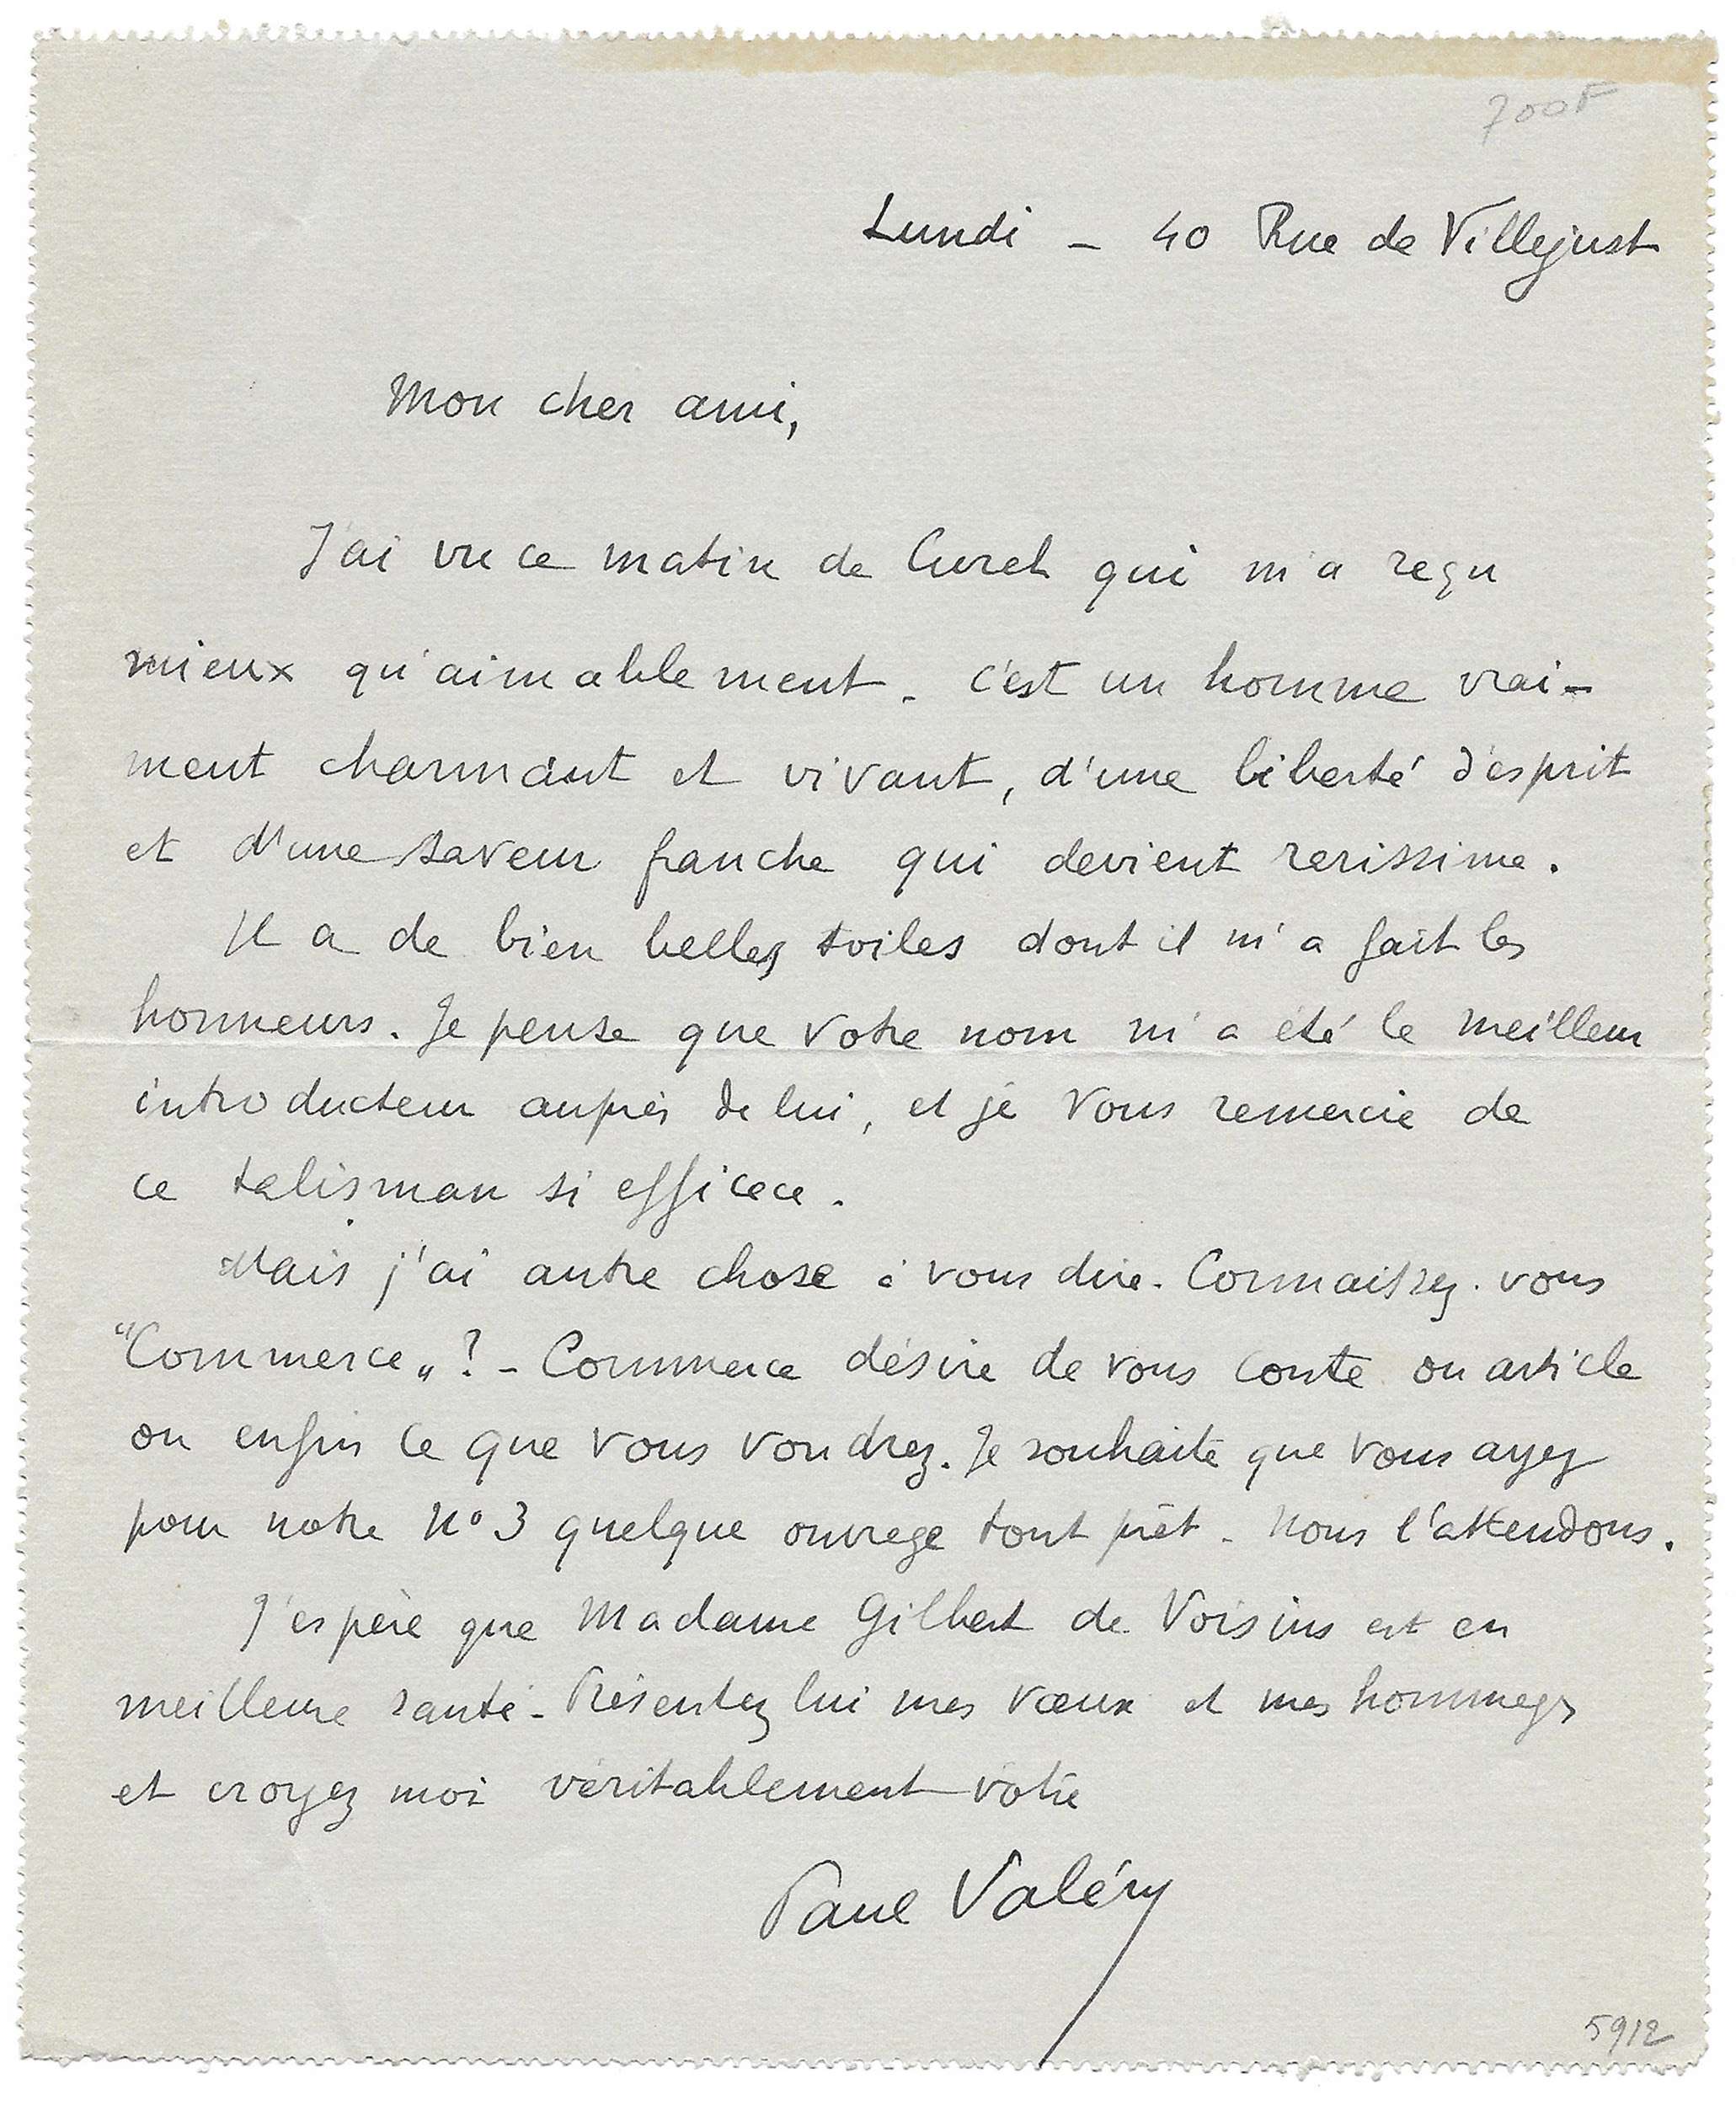 700F
Lundi - 40 Rue de Villejust
Mon cher ami,
J'ai vu ce matin de Curel qui m'a reçu
mieux qu'aimablement. C'est un homme vrai-
ment charmant et vivant, d'une liberté d'esprit
et d'une saveur franche qui devient rarissime.
Il a de bien belles toiles dont il m'a fait les
honneurs. Je pense que votre nom m'a été le meilleur
introducteur auprès de lui, et je vous remercie de
ce talisman si efficace.
Mais j'ai autre chose à vous dire. Connaissez-vous
"Commerce" ? - Commerce désire de vous conte ou article
ou enfin ce que vous voudrez. Je souhaite que vous ayez
pour notre N° 3 quelque ouvrage tout prêt. Nous l'attendons.
J'espère que Madame Gilbert de Voisins est en
meilleure santé - Présentez lui mes vœux et mes hommages
et croyez moi véritablement vôtre
Paul Valéry
5912